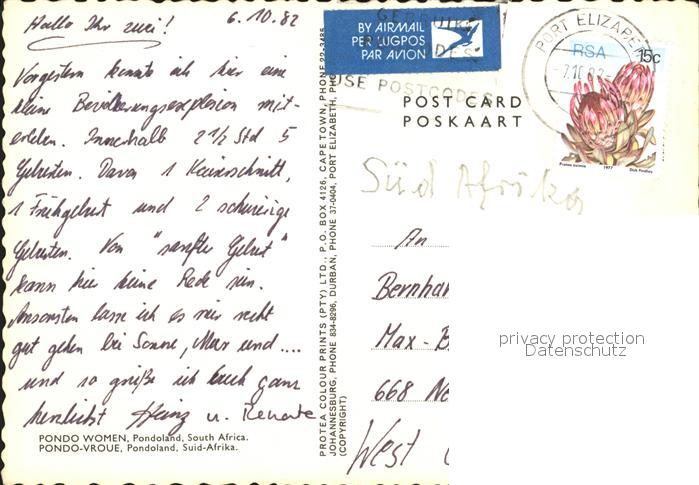 Hallo Ihr zwei! 6.10.82
Vorgestern konnte ich hier eine
kleine Bevölkerungsexplosion mit-
erleben. Innerhalb 2 1/2 Std 5
Geburten. Davon 1 Kaiserschnitt,
1 Frühgeburt und 2 schwierige
Geburten. Von "sanfter Geburt"
kann hier keine Rede sein.
Ansonsten lasse ich es mir recht
gut gehen bei Sonne, Meer und ....
und so grüße ich Euch ganz
herzlichst Heinz u. Renate
PONDO WOMEN, Pondoland, South Africa.
PONDO-VROUE, Pondoland, Suid-Afrika.
PROTEA COLOUR PRINTS (PTY) LTD., P.O. BOX 4126, CAPE TOWN, PHONE 22-3485
JOHANNESBURG, PHONE 834-8296, DURBAN, PHONE 37-0404, PORT ELIZABETH, PHO
(COPYRIGHT)
BY AIRMAIL
PER LUGPOS
PAR AVION
USE POSTCODES
PORT ELIZABETH
RSA
15c
-7.10.82
1977
Dick Findlay
POST CARD
POSKAART
Süd Afrika
An
Bernhar
Max-B
668 Ne
West
privacy protection
Datenschutz